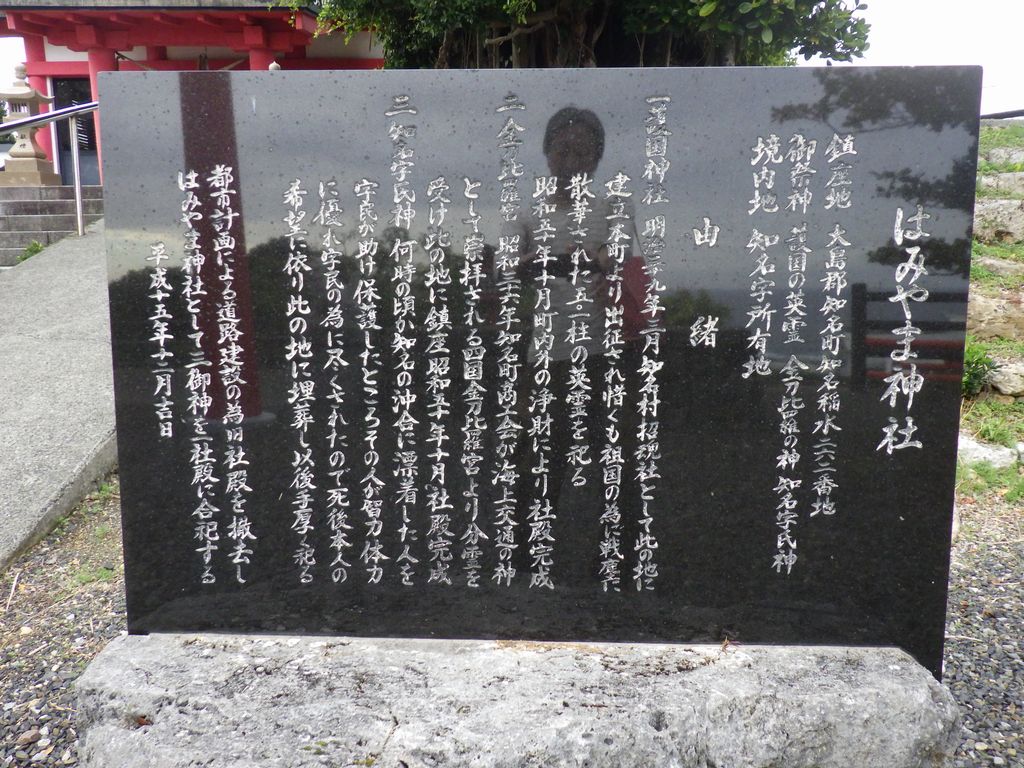 はみやま神社
鎮座地 大島郡知名町知名稲水二六二番地
御祭神 護国の英霊 金刀比羅の神 知名字氏神
境内地 知名字所有地
由緒
一 護国神社 明治三九年三月知名村招魂社として此の地に
建立本町より出征され惜くも祖国の為に戦塵に
散華された五一柱の英霊を祀る
昭和五年十月町内外の浄財により社殿完成
二 金刀比羅宮 昭和二六年知名町商工会が海上交通の神
として崇拝される四国金刀比羅宮より分霊を
受け此の地に鎮座昭和五十年十月社殿完成
三 知名字氏神 何時の頃か知名の沖合に漂着した人を
字民が助け保護したところその人が智力体力
に優れ字民の為に尽くされたので死後本人の
希望に依り此の地に埋葬し以後手厚く祀る
都市計画による道路建設の為旧社殿を撤去し
はみやま神社として三御神を一社殿に合祀する
平成十五年十二月吉日